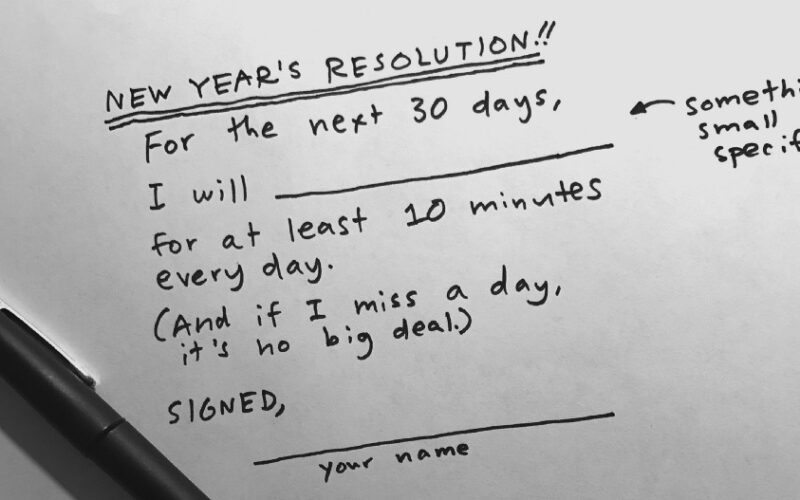 NEW YEAR'S RESOLUTION!!
For the next 30 days,
I will
for at least 10 minutes
every day.
(And if I miss a day,
it's no big deal.)
SIGNED,
your name
small